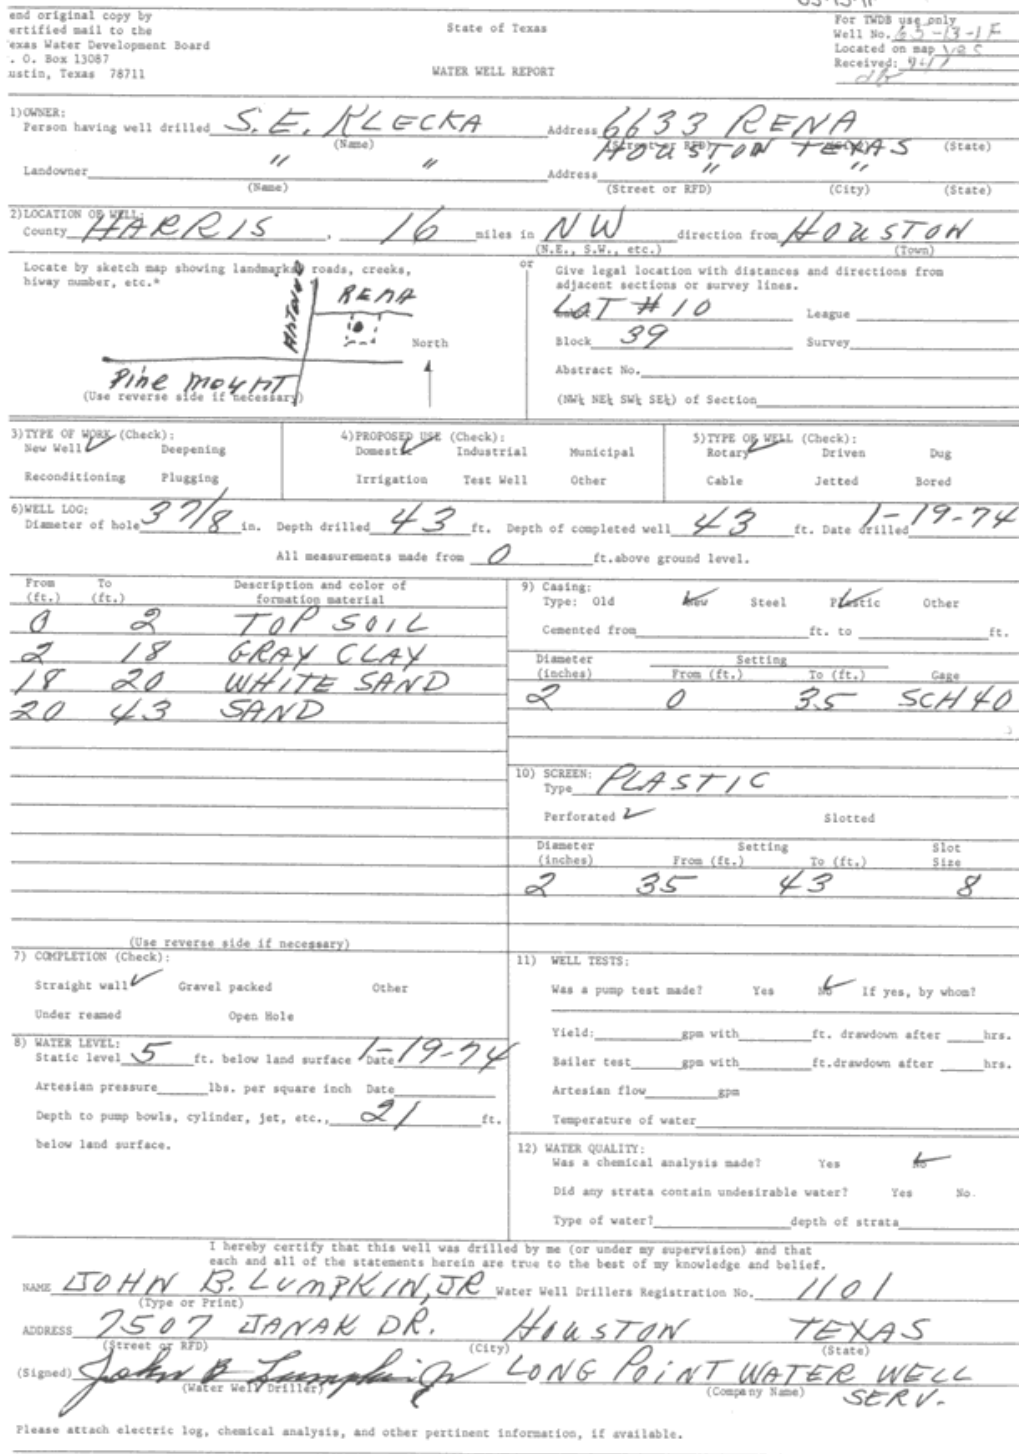 end original copy by
ertified mail to the
exas Water Development Board
. O. Box 13087
ustin, Texas 78711
State of Texas
WATER WELL REPORT
For TWDB use only
Well No.
Located on map
Received:
1)OWNER:
Person having well drilled S.E. KLECKA Address 6633 RENA
(Name) (Street or RFD) HOUSTON TEXAS (State)
Landowner " " Address " "
(Name) (Street or RFD) (City) (State)
2)LOCATION OF WELL:
County HARRIS , 16 miles in NW direction from HOUSTON
(N.E., S.W., etc.) (Town)
Locate by sketch map showing landmarks, roads, creeks,
hiway number, etc.*
RENA
North
Pine MOUNT
(Use reverse side if necessary)
or
Give legal location with distances and directions from
adjacent sections or survey lines.
LOT # 10 League
Block 39 Survey
Abstract No.
(NW¼ NE¼ SW¼ SE¼) of Section
3)TYPE OF WORK (Check):
New Well ✓ Deepening
Reconditioning Plugging
4)PROPOSED USE (Check):
Domestic ✓ Industrial Municipal
Irrigation Test Well Other
5)TYPE OF WELL (Check):
Rotary ✓ Driven Dug
Cable Jetted Bored
6)WELL LOG:
Diameter of hole 3 7/8 in. Depth drilled 43 ft. Depth of completed well 43 ft. Date drilled 1-19-74
All measurements made from 0 ft.above ground level.
From (ft.) To (ft.) Description and color of formation material
0 2 TOP SOIL
2 18 GRAY CLAY
18 20 WHITE SAND
20 43 SAND
(Use reverse side if necessary)
9) Casing:
Type: Old New ✓ Steel Plastic ✓ Other
Cemented from ft. to ft.
Diameter (inches) Setting From (ft.) To (ft.) Gage
2 0 35 SCH 40
10) SCREEN:
Type PLASTIC
Perforated ✓ Slotted
Diameter (inches) Setting From (ft.) To (ft.) Slot Size
2 35 43 8
7) COMPLETION (Check):
Straight wall ✓ Gravel packed Other
Under reamed Open Hole
8) WATER LEVEL:
Static level 5 ft. below land surface Date 1-19-74
Artesian pressure lbs. per square inch Date
Depth to pump bowls, cylinder, jet, etc., 21 ft.
below land surface.
11) WELL TESTS:
Was a pump test made? Yes No ✓ If yes, by whom?
Yield: gpm with ft. drawdown after hrs.
Bailer test gpm with ft.drawdown after hrs.
Artesian flow gpm
Temperature of water
12) WATER QUALITY:
Was a chemical analysis made? Yes No ✓
Did any strata contain undesirable water? Yes No.
Type of water? depth of strata
I hereby certify that this well was drilled by me (or under my supervision) and that
each and all of the statements herein are true to the best of my knowledge and belief.
NAME JOHN B. LUMPKIN, JR Water Well Drillers Registration No. 1101
(Type or Print)
ADDRESS 7507 JANAK DR. HOUSTON TEXAS
(Street or RFD) (City) (State)
(Signed) John B Lumpkin Jr LONG POINT WATER WELL
(Water Well Driller) (Company Name) SERV.
Please attach electric log, chemical analysis, and other pertinent information, if available.